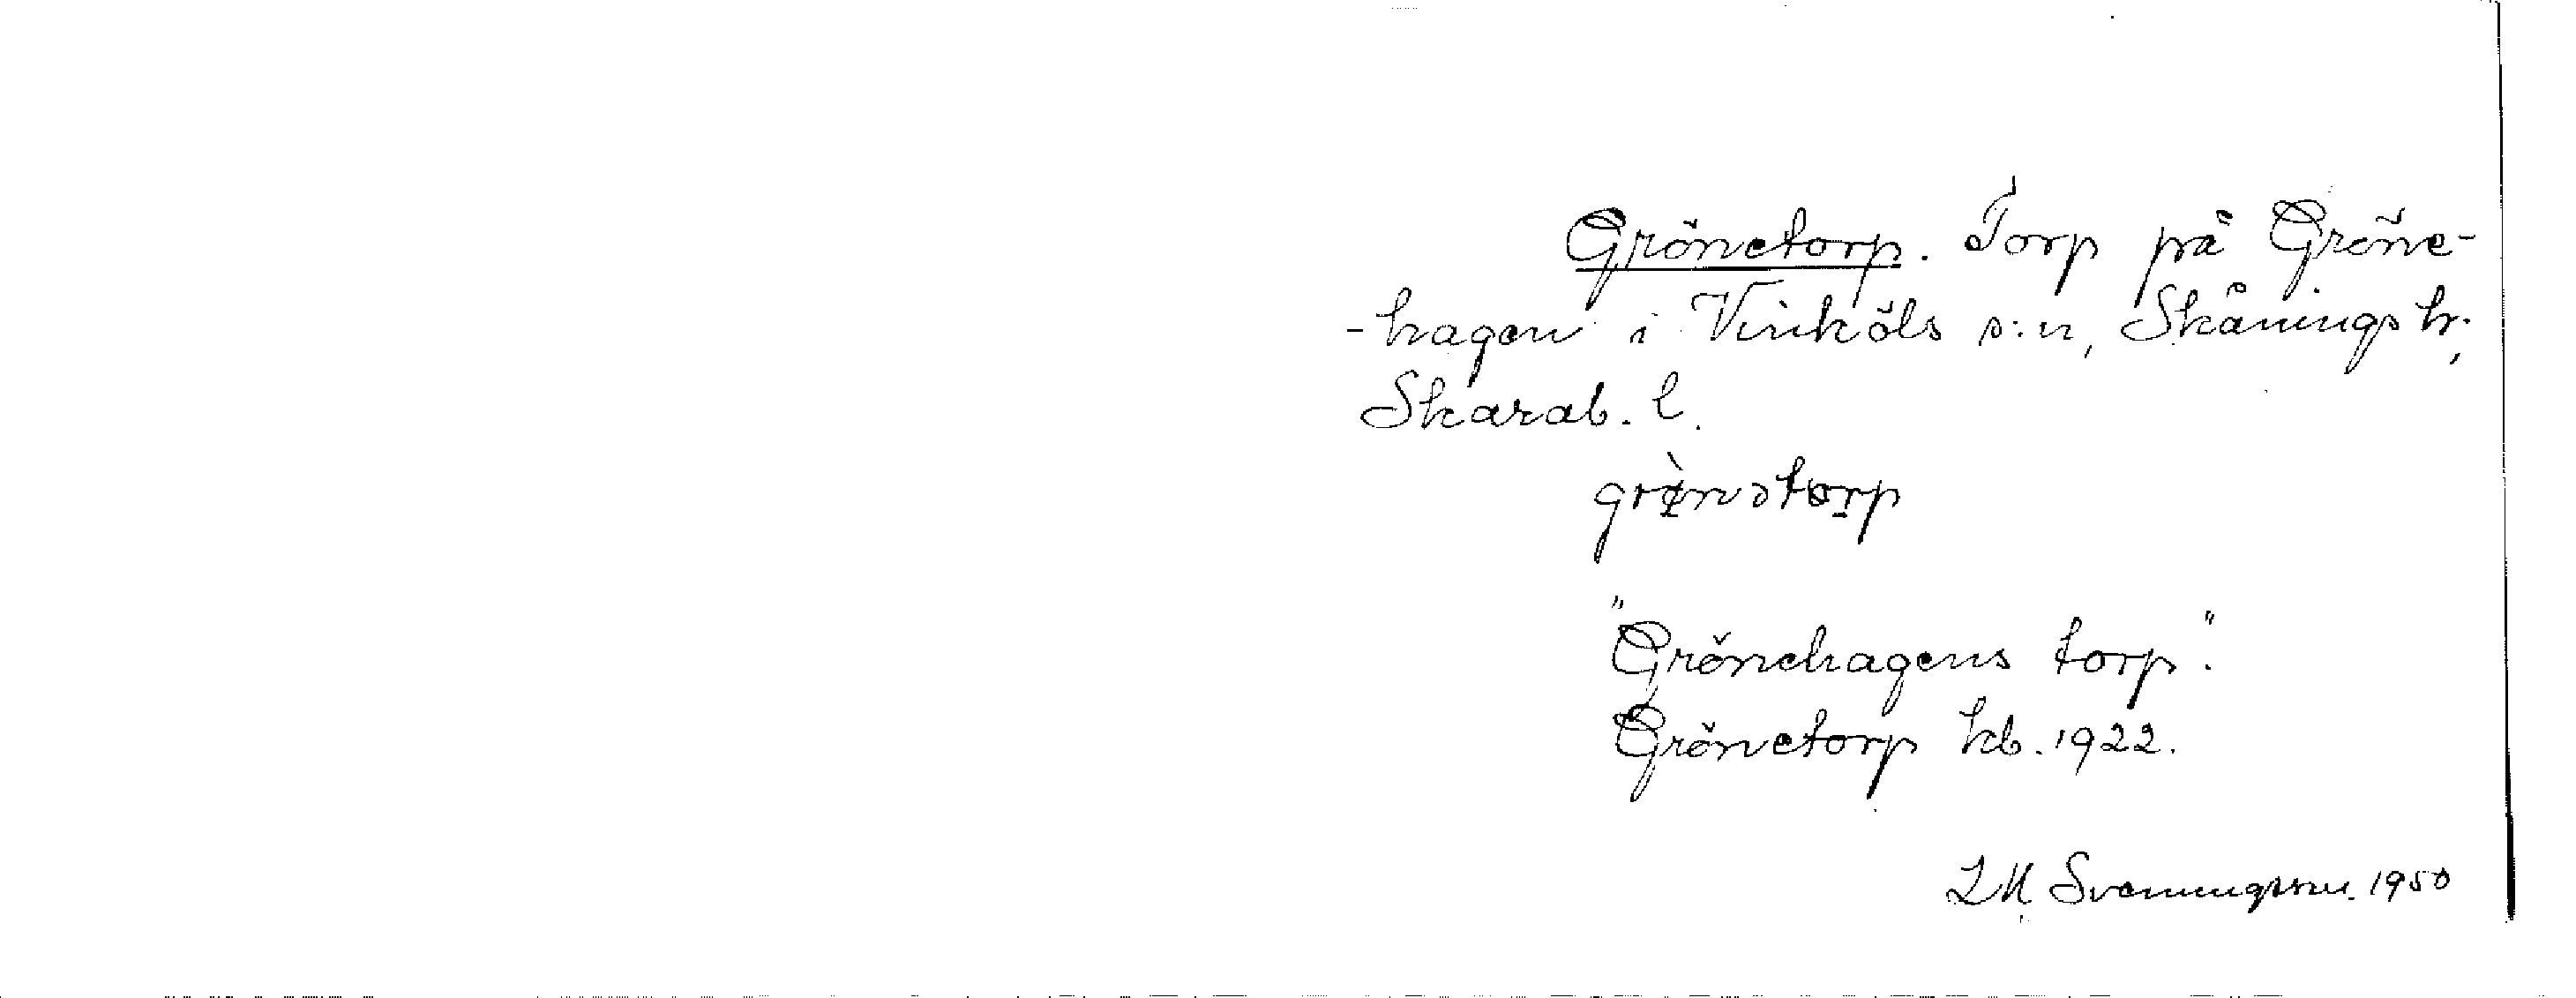 Grönetorp. Torp på Gröne-
-hagen i Vinköls s:n, Skånings hr.,
Skarab. l.
grø̀nətorp
"Grönehagens torp".
Grönetorp kb. 1922.
Sveningsson. 1950